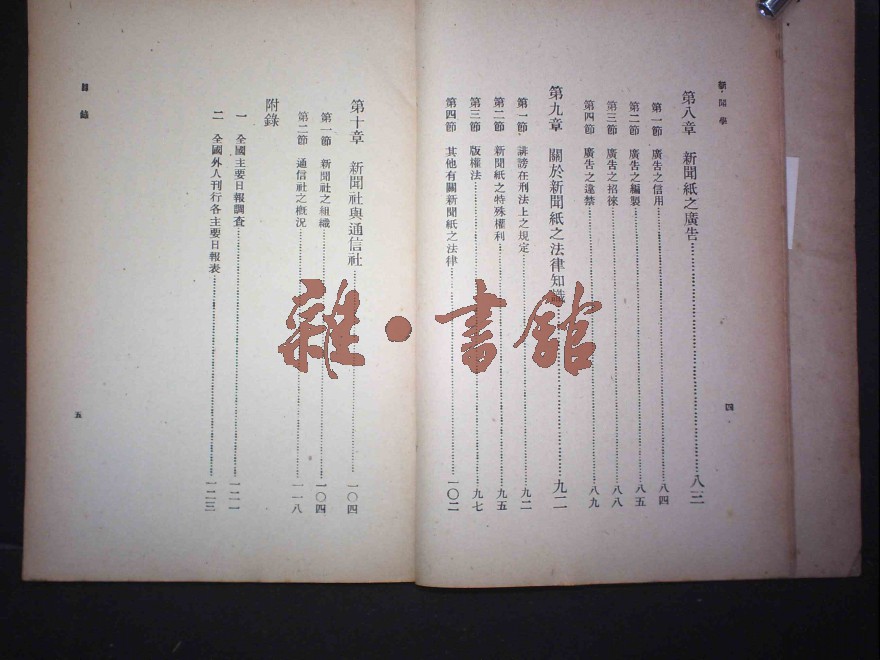 新聞學
四
第八章 新聞紙之廣告……八三
第一節 廣告之信用……八四
第二節 廣告之編製……八五
第三節 廣告之招徠……八八
第四節 廣告之違禁……八九
第九章 關於新聞紙之法律知識……九二
第一節 誹謗在刑法上之規定……九二
第二節 新聞紙之特殊權利……九五
第三節 版權法……九七
第四節 其他有關新聞紙之法律……一〇二
第十章 新聞社與通信社……一〇四
第一節 新聞社之組織……一〇四
第二節 通信社之概況……一一八
附錄
一 全國主要日報調查……一二一
二 全國外人刊行各主要日報表……一二三
目錄
五
雜·書館